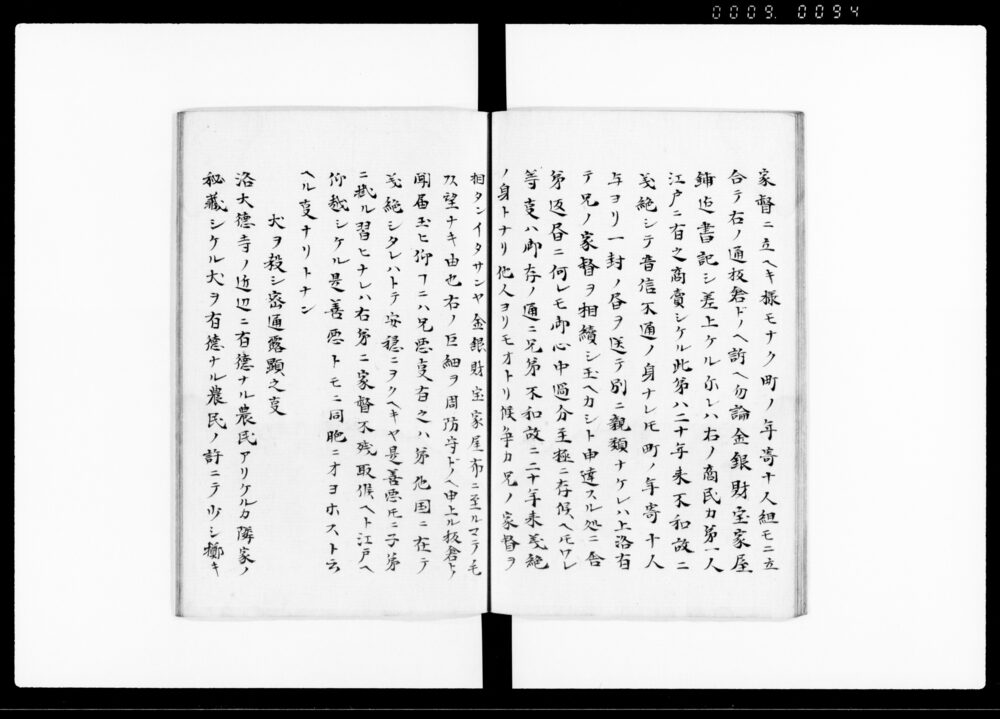 0009. 0094
家督ニ立ヘキ様モナク町ノ年寄十人組モニ立
合テ右ノ通板倉ドノヘ訴ヘ勿論金銀財宝家屋
鋪迄書記シ差上ケル尓レハ右ノ商民カ第一人
江戸ニ有之商賣シケル此第ハ二十年来不和故ニ
義絶シテ音信不通ノ身ナレ𪜈町ノ年寄十人
与ヨリ一封ノ書ヲ送テ別ニ親類ナケレハ上洛有
テ兄ノ家督ヲ相續シ玉ヘカシト申達スル処ニ舎
第返書ニ何レモ御心中過分至極ニ存候ヘ𪜈ワレ
等事ハ御存ノ通ニ兄第不和故ニ二十年来義絶
ノ身トナリ他人ヨリモオトリ候争カ兄ノ家督ヲ
相タンイタサンヤ金銀財宝家屋布ニ至ルマテ毛
ノ望ナキ由也右ノ巨細ヲ周防守ドノヘ申上ル板倉ト
聞届玉ヒ仰フニハ兄悪事有之ハ第他国ニ在テ
義絶シタレハトテ安穏ニヲクヘキヤ是善悪𪜈ニ子第
ニ拭ル習ヒナレハ右第ニ家督不残取候ヘト江戸ヘ
仰越シケル是善悪トモニ同胞ニオヨホスト云
ヘル事ナリトナン
犬ヲ殺シ密通露顕之事
洛大徳寺ノ近辺ニ有徳ナル農民アリケルカ隣家ノ
秘蔵シケル犬ヲ有徳ナル農民ノ許ニテツシ擲キ